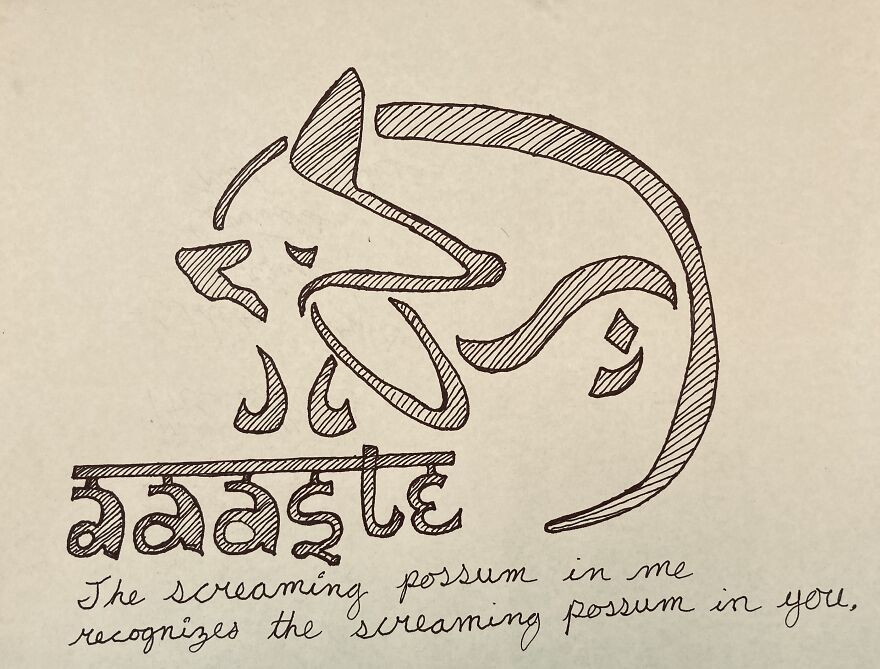 aaaste
The screaming possum in me
recognizes the screaming possum in you.